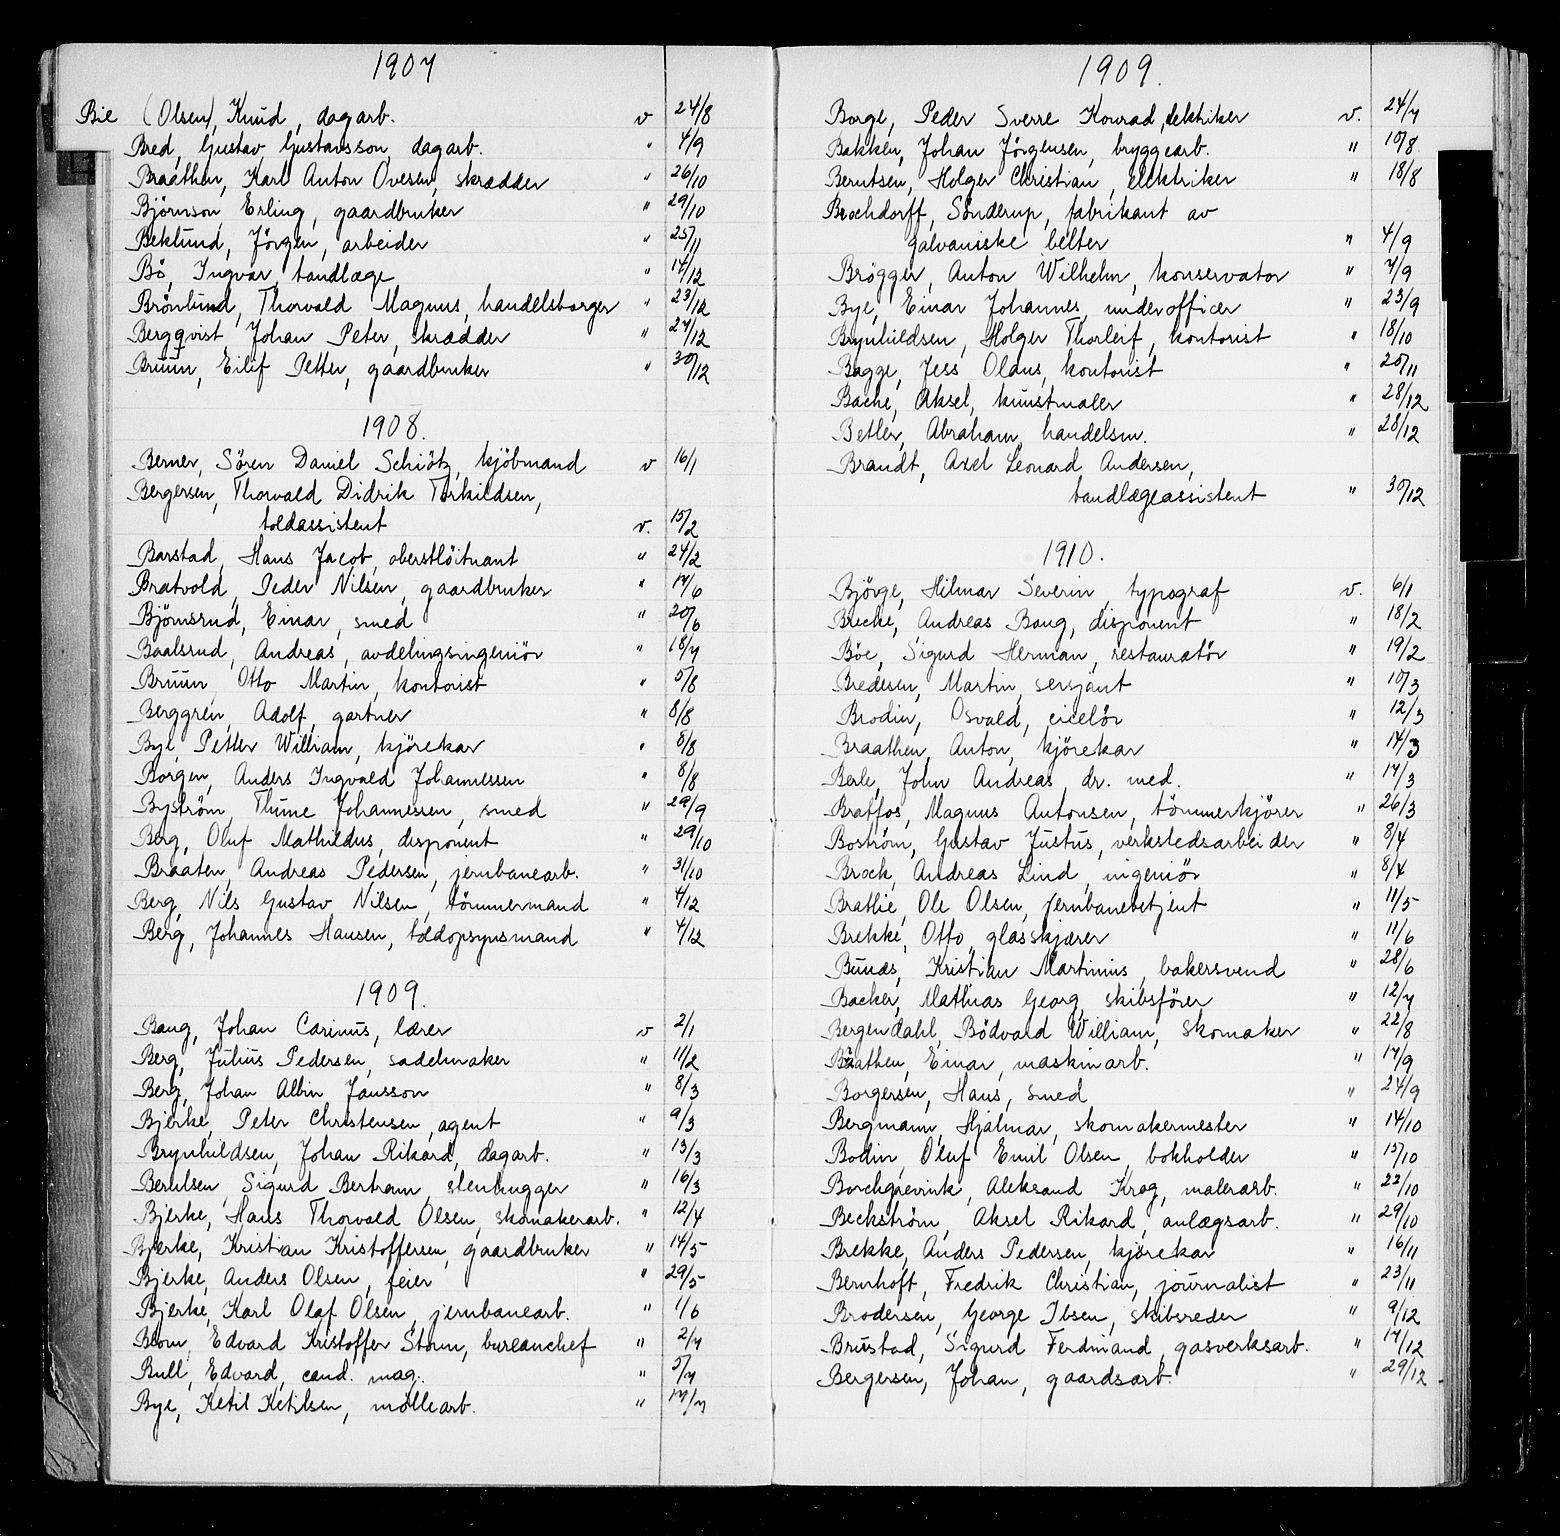 1907
Bie (Olsen), Knud, dagarb. v 24/8
Bred, Gustav Gustavsson, dagarb. " 4/9
Braathen, Karl Anton Ovesen, skrædder " 26/10
Björnson, Erling, gaardbruker " 29/10
Beklund, Jörgen, arbeider " 25/11
Bö, Ingvar, tandlæge " 14/12
Brönlund, Thorvald Magnus, handelsborger " 23/12
Bergqvist, Johan Peter, skrædder " 27/12
Bruun, Eilif Petter, gaardbruker " 30/12
1908.
Berner, Sören Daniel Schiötz, kjöbmand v 16/1
Bergersen, Thorvald Didrik Torkildsen,
toldassistent v. 15/2
Barstad, Hans Jacob, oberstlöitnant " 24/2
Bratvold, Peder Nilsen, gaardbruker " 17/6
Björnsrud, Einar, smed " 20/6
Baalsrud, Andreas, avdelingsingeniör " 18/7
Bruun, Otto Martin, kontorist " 5/8
Berggren, Adolf, gartner " 8/8
Bye, Petter William, kjörekar " 8/8
Borgen, Anders Ingvald Johannessen " 8/8
Byström, Thune Johannessen, smed " 29/9
Berg, Oluf Mathildus, disponent " 29/10
Braaten, Andreas Pedersen, jernbanearb. " 31/10
Berg, Nils Gustav Nilsen, tömmermand " 4/12
Berg, Johannes Hansen, toldopsynsmand " 4/12
1909.
Baug, Johan Carinus, lærer v 2/1
Berg, Julius Pedersen, sadelmaker " 11/2
Berg, Johan Albin Jansson " 8/3
Bjerke, Peter Christensen, agent " 9/3
Brynhildsen, Johan Rikard, dagarb. " 13/3
Berntsen, Sigurd Bertram, stenhugger " 16/3
Bjerke, Hans Thorvald Olsen, skomakerarb. " 12/4
Bjerke, Kristian Kristoffersen, gaardbruker " 14/5
Bjerke, Anders Olsen, feier " 29/5
Bjerke, Karl Olaf Olsen, jernbanearb. " 1/6
Blom, Edvard Kristoffer Storm, bureauchef " 2/7
Bull, Edvard, cand. mag. " 5/7
Bye, Ketil Ketilsen, möllearb. " 17/7
1909.
Borge, Peder Sverre Konrad, elektriker v. 24/7
Bakken, Johan Jörgensen, bryggearb. " 10/8
Berntsen, Holger Christian, elektriker " 18/8
Brochdorff, Sönderup, fabrikant av
galvaniske belter " 4/9
Brögger, Anton Wilhelm, konservator " 7/9
Bye, Einar Johannes, underofficer " 23/9
Brynhildsen, Holger Thorleif, kontorist " 18/10
Bagge, Jess Olaus, kontorist " 20/11
Bache, Aksel, kunstmaler " 28/12
Betler, Abraham, handelsm. " 28/12
Brandt, Axel Leonard Andersen,
tandlægeassistent " 30/12
1910.
Björge, Hilmar Severin, typograf v. 6/1
Brecke, Andreas Baug, disponent " 18/2
Böe, Sigurd Herman, restauratör " 19/2
Bredesen, Martin, sersjant " 10/3
Brodin, Osvald, ciselör " 12/3
Braathen, Anton, kjörekar " 14/3
Berle, John Andreas, dr. med. " 17/3
Braffos, Magnus Antonsen, tömmerkjörer " 26/3
Boström, Gustav Justus, verkstedsarbeider " 8/4
Brock, Andreas Lind, ingeniör " 8/4
Bratlie, Ole Olsen, jernbanebetjent " 11/5
Brekke, Otto, glasskjærer " 11/6
Bunæs, Kristian Martinius, bakersvend " 28/6
Backer, Mathias Georg, skibsförer " 12/7
Bergendahl, Bödvard William, skomaker " 22/8
Braathen, Einar, maskinarb. " 17/9
Borgersen, Hans, smed " 24/9
Bergmann, Hjalmar, skomakermester " 14/10
Bodin, Oluf Emil Olsen, bokholder " 15/10
Borchgrevink, Aleksand Krog, malerarb. " 22/10
Beckström, Aksel Rikard, anlægsarb. " 29/10
Brekke, Anders Pedersen, kjörekar " 16/11
Bernhoft, Fredrik Christian, journalist " 23/11
Brodersen, George Ibsen, skibsreder " 9/12
Brustad, Sigurd Ferdinand, gasverksarb. " 17/12
Bergersen, Johan, gaardsarb. " 29/12